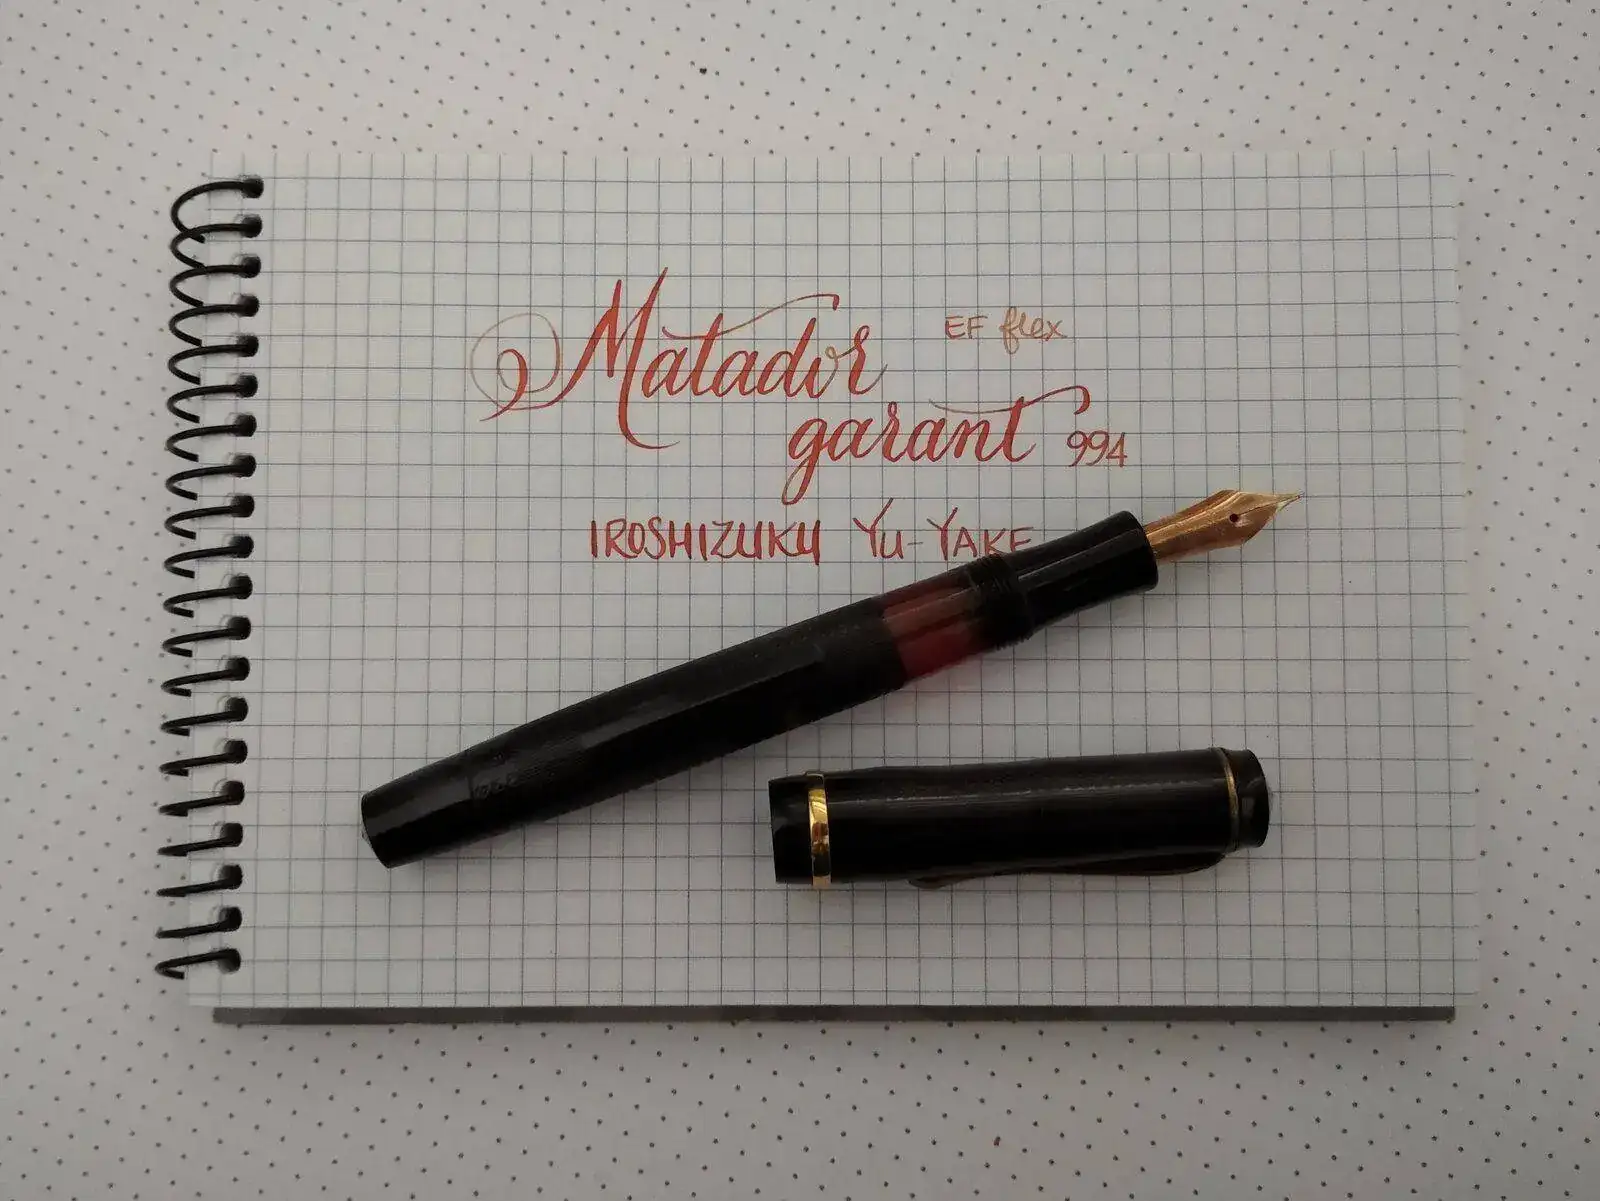 Matador EF flex
garant 994
IROSHIZUKU YU-YAKE